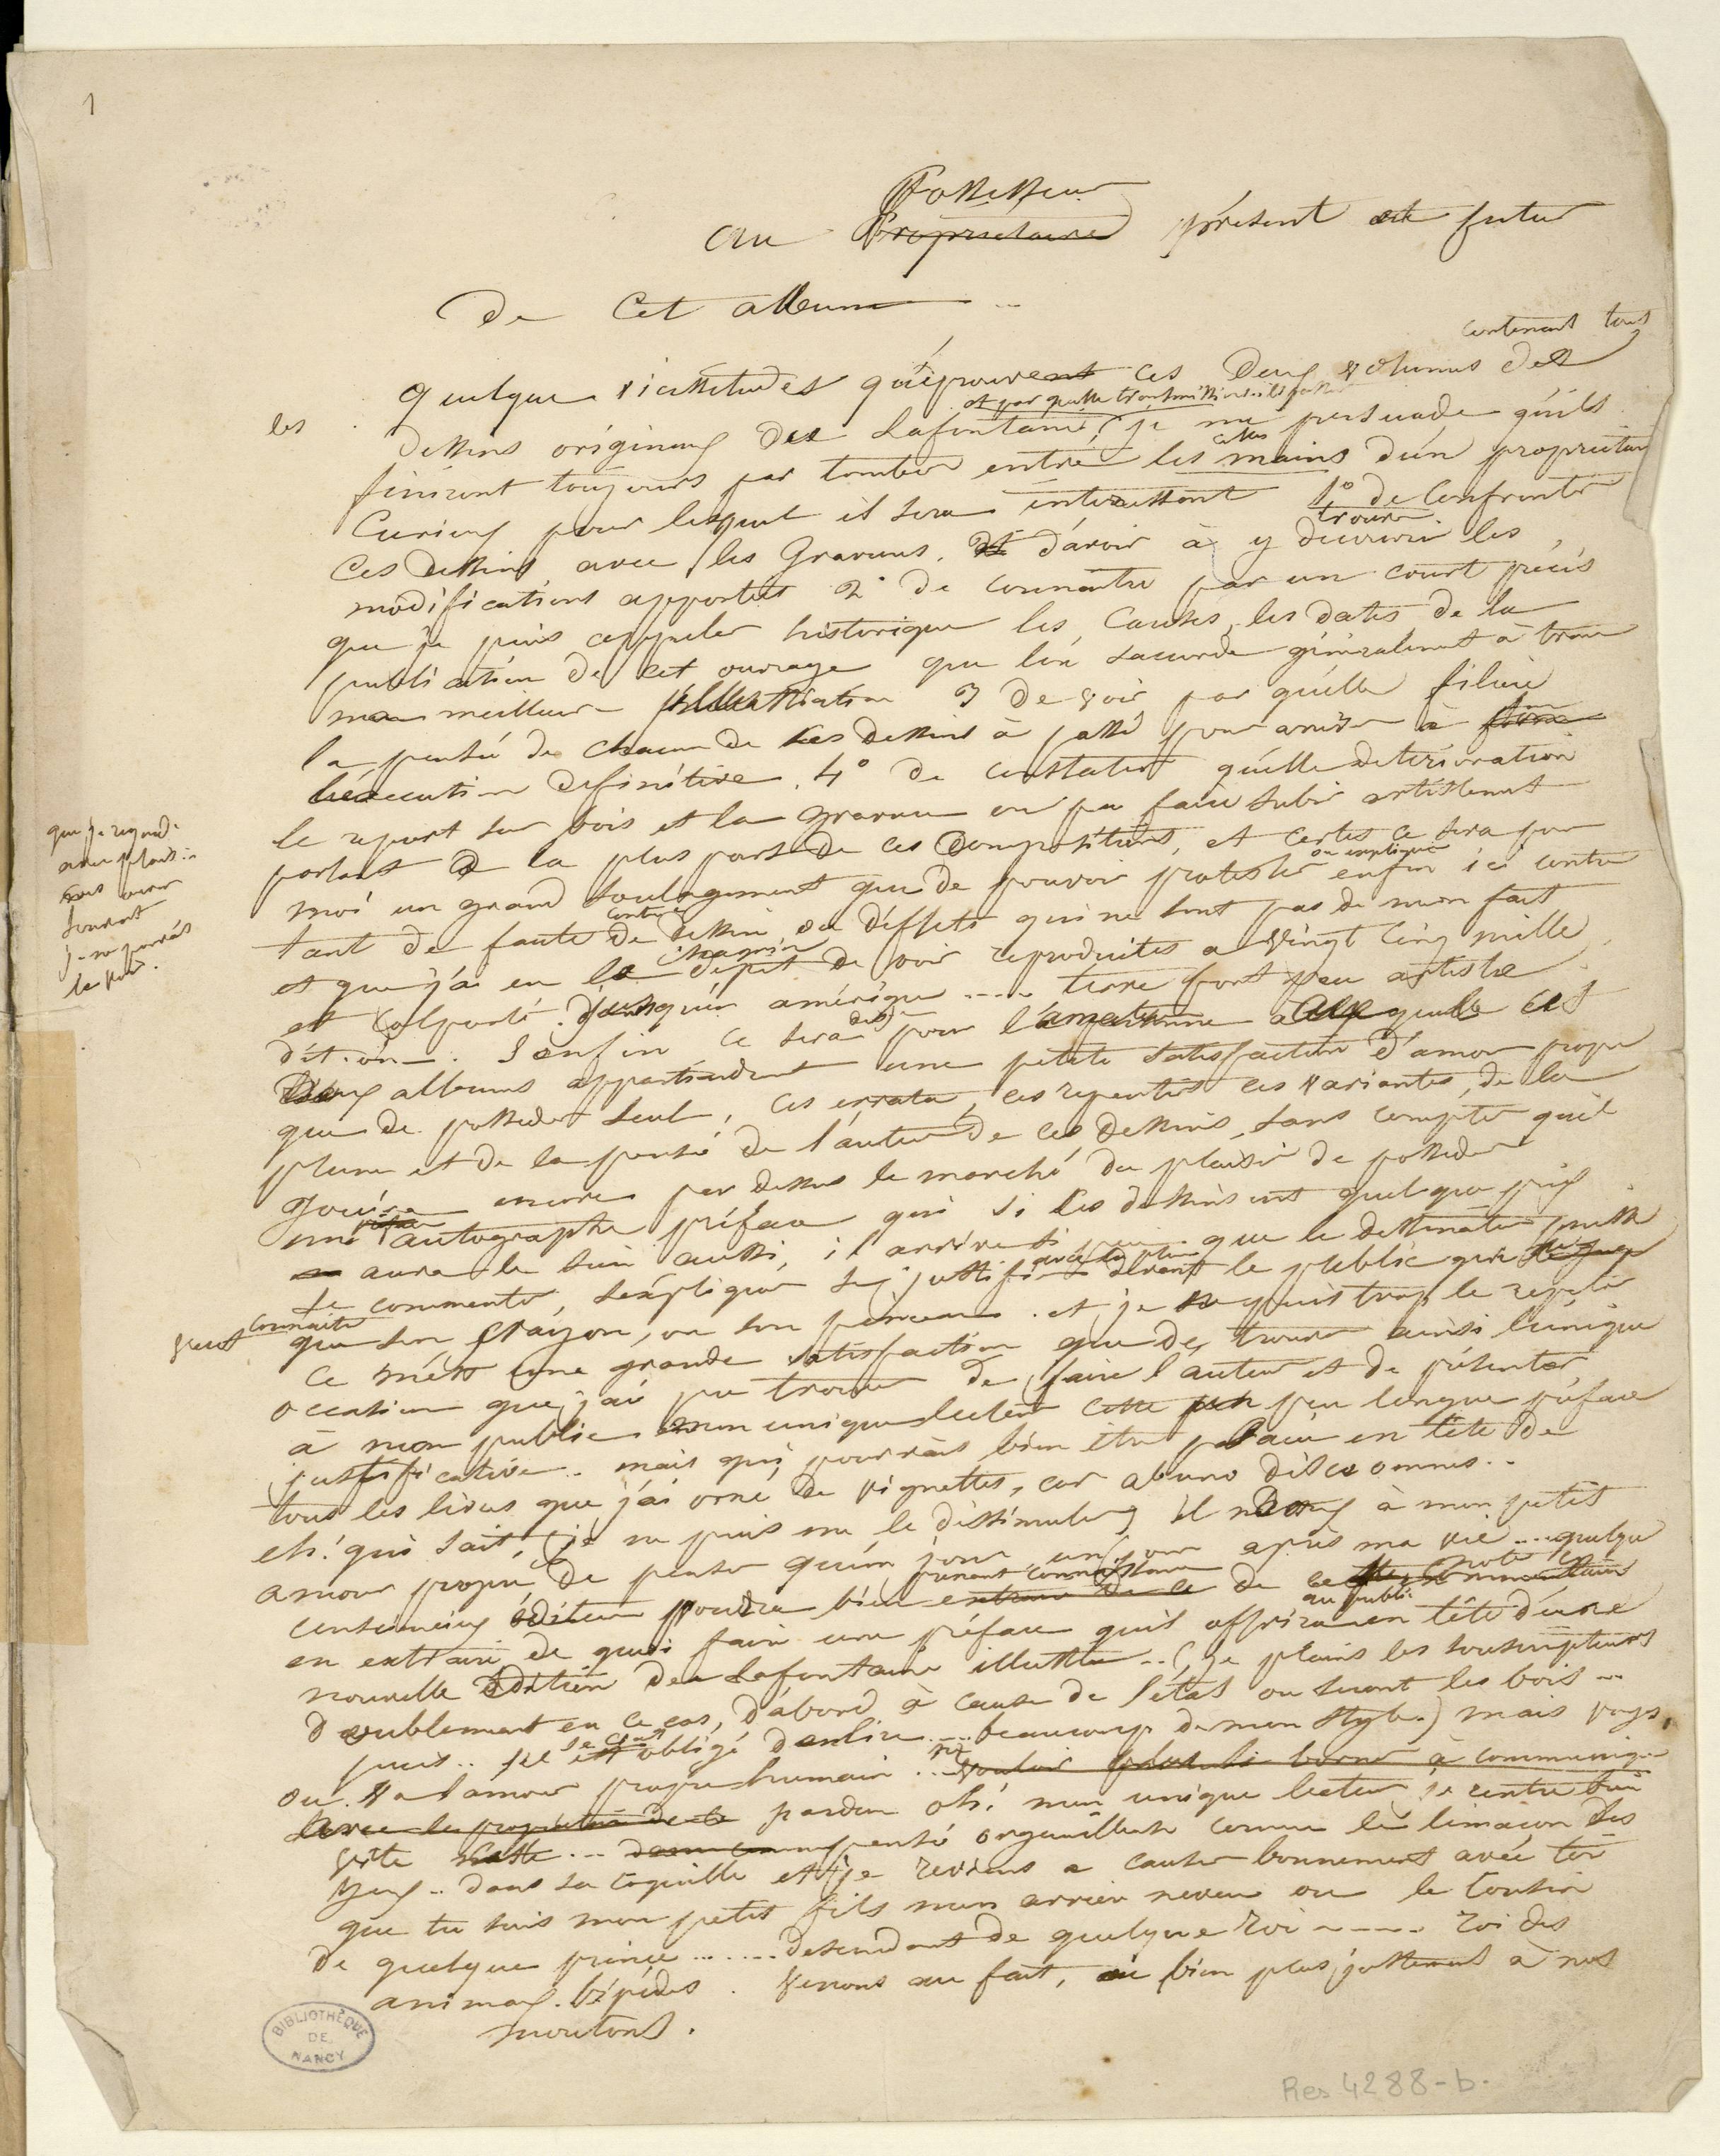 1
Possesseur
au Propriétaire présent et futur
de cet album ...
contenant tous
quelque vicissitudes qu'éprouvent ces deux volumes des
et par quelle transmission ils passent
les
dessins originaux des Lafontaine, je me persuade qu'ils
celles
finiront toujours par tomber entre les mains d'un propriétaire
curieux pour lesquel il sera intéressant 1º de confronter
trouver
ces dessins avec les Gravures, et d'avoir à y découvrir les
modifications apportés 2º de connaitre par un court précis
que je puis appeler historique les causes, les dates de la
publication de cet ouvrage que l'on saccorde généralement à trouver
ma meilleure illustration 3 de voir par quélle filière
la pensée de chacun de ces dessins à passé pour arriver à
l'éxécution définitive. 4º de constater quélle déterioration
le report sur bois et la gravure on pu faire subir artistement
parlant à la plus part de ces compositions, et certes ce sera pour
ou expliquer
moi un grand soulagement que de pouvoir protester enfin ici contre
contre
tant de faute de dessin ou d'éffets qui ne sont pas de mon fait
chagrin
et que j'ai eu le dépit de voir reproduites a vingt cinq mille
et colporté jusqu'en amérique .... terre fort peu artiste
dit-on. 5 enfin ce sera pour l'amateur à quelle ces
deux albums appartiendront une petite satisfaction d'amour propre
que de posséder seul, ces errata, ces repentirs ces variantes, de la
plume et de la pensé de l'auteur de ces dessins, sans compter qu'il
jouira encore par dessus le marché du plaisir de posseder
une autographe préface qui si les dessins ont quelque prix
aura le sien aussi, il arrive si peu que le dessinateur puisse
avec la plume
se commenter, s'expliquer se justifier devant le public qui
veut connaitre
que son crayon, ou son pinceau. et je ne puis trop le repeter
ce m'est une grande satisfaction que de trouver ainsi l'unique
occasion que j'ai pu trouver de faire l'auteur et de présenter
à mon public mon unique lecteur cette peu longue préface
justificative. mais qui pourrais bien être placée en tête de
tous les livres que j'ai orné de vignettes, car ab uno disce omnes..
eh! qui sait, je ne puis me le dissimuler, il est doux à mon petit
amour propre de penser qu'un jour, un jour après ma vie ... quelque
prenant connaissance
note
consciencieux éditeur voudra bien de ce commentaire
au public
en extraire de quoi faire une préface quil offrira en tête d'une
nouvelle Edition des Lafontaine illustrée .. (je plains les souscripteurs
doublement en ce cas, d'abord à cause de l'état ou seront les bois ...
puis .. d'être obligé d'en lire ... beaucoup de mon style.) mais voyez
ou va l'amour propre humain ... vouloir plus se borner à communiquer
avec le propriétaire de ce pardon oh! mon unique lecteur je rentre bien
vite cette ... pensé orgueilleuse comme le limaçon ses
yeux .. dans sa coquille et je reviens a causer bonnement avec toi
que tu sois mon petit fils mon arrière neveu ou le cousin
de quelque prince ....... descendant de quelque roi ..... roi des
animaux. bipèdes. Venons au fait, ou bien plus justement à nos
moutons.
que je regarde
avec plaisir
sans avoir
souvent
je ne pourrais
BIBLIOTHÈQUE
DE
NANCY
Res 4288-b.